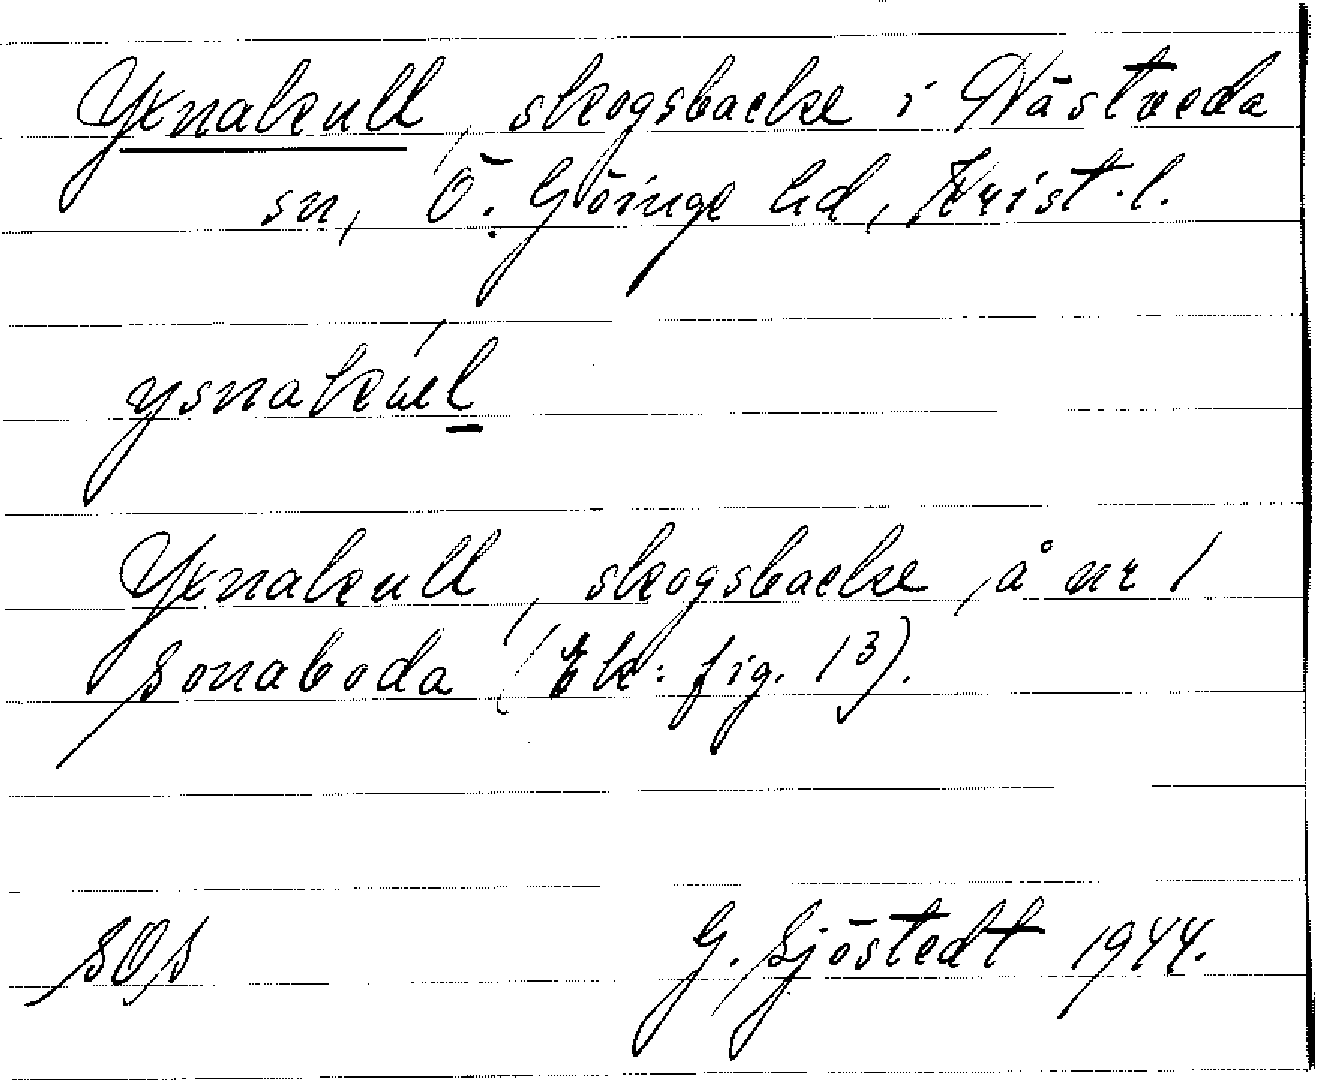 Yxnakull, skogsbacke i Nästveda
sn, Ö. Göinge hd, Krist. l.
ysnakúl
Yxnakull, skogsbacke, å nr 1
Sonaboda (Ek: fig. 13).
SOS G. Sjöstedt 1944.